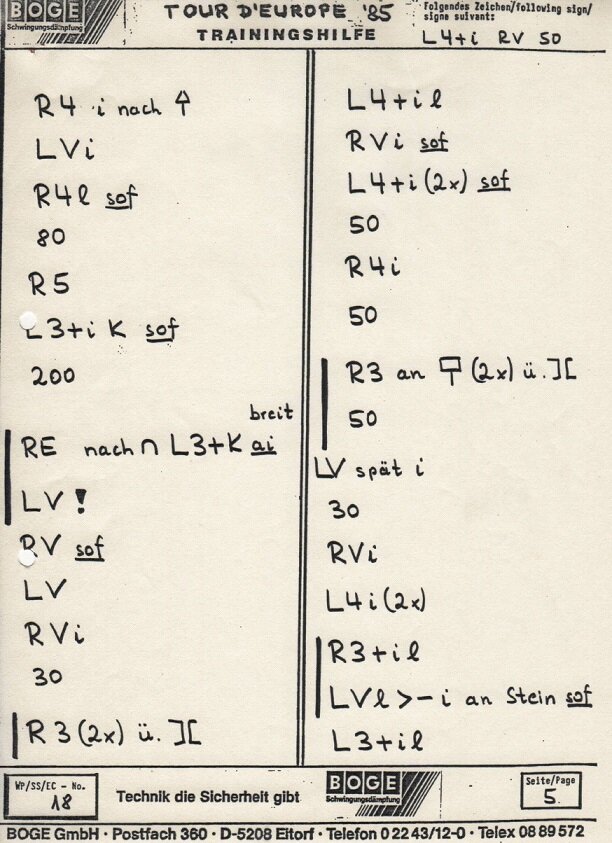 BOGE
Schwingungsdämpfung
TOUR D'EUROPE '85
TRAININGSHILFE
Folgendes Zeichen/following sign/
signe suivant:
L4+i RV 50
R4 i nach
LVi
R4l sof
80
R5
L3+i K sof
200
breit
RE nach ∩ L3+K ai
LV !
RV sof
LV
RVi
30
R3 (2x) ü. ][
L4+il
RVi sof
L4+i (2x) sof
50
R4i
50
R3 an (2x) ü. ][
50
LV spät i
30
RVi
L4i (2x)
R3+il
LVl >– i an Stein sof
L3+il
WP/SS/EC – No.
18
Technik die Sicherheit gibt
BOGE
Schwingungsdämpfung
Seite/Page
5
BOGE GmbH · Postfach 360 · D-5208 Eitorf · Telefon 0 22 43/12-0 · Telex 08 89 572